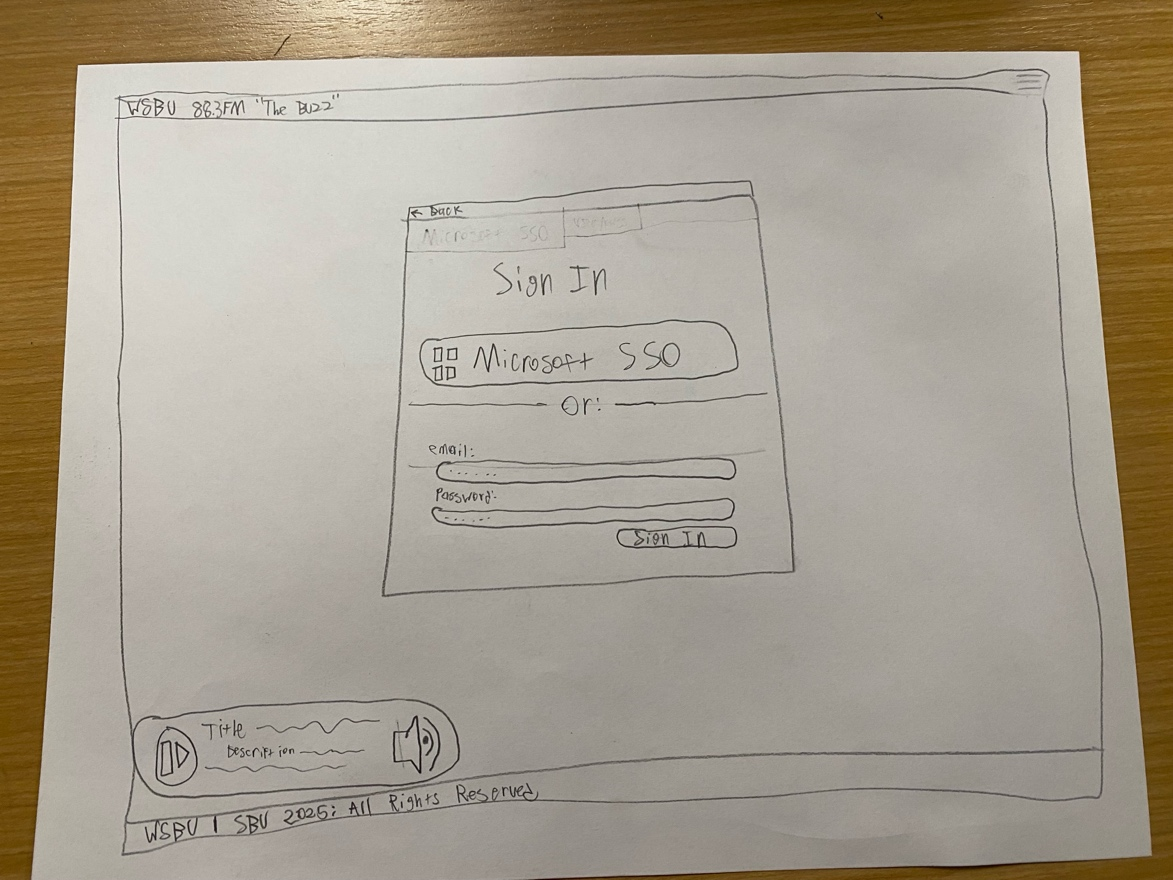 WSBU 88.3FM "The Buzz"
← Back
Microsoft SSO
Sign In
Microsoft SSO
Or:
email:
Password:
Sign In
Title
Description
WSBU | SBU 2025: All Rights Reserved